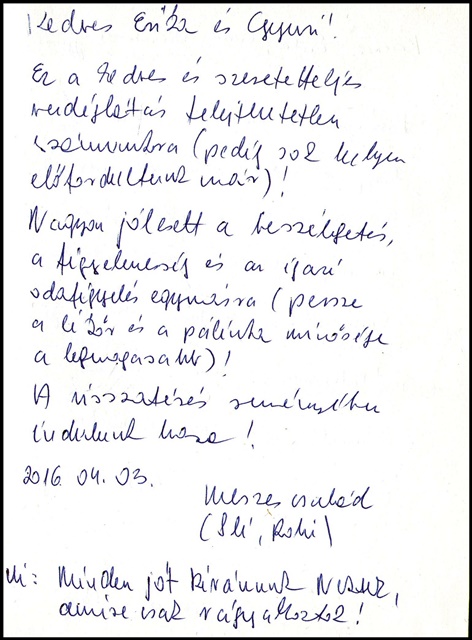 Kedves Erika és Gyuri!
Ez a kedves és szeretetteljes
vendéglátás felejthetetlen
számunkra (pedig sok helyen
előfordultunk már)!
Nagyon jólesett a beszélgetés,
a figyelmesség és az igazi
odafigyelés egymásra (persze
a likőr és a pálinka minősége
a legmagasabb)!
A visszatérés reményében
indulunk haza!
2016. 04. 03.
Meszes család
(Ili, Robi)
Ui: Minden jót kívánunk Nektek,
amire csak vágyakoztok!